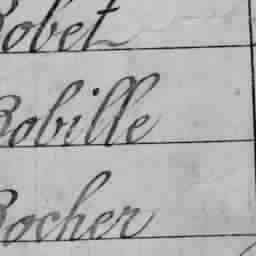 Robet
Robille
Rocher